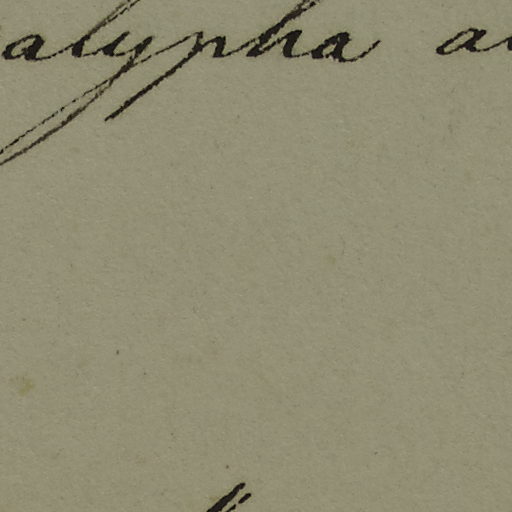 alypha a